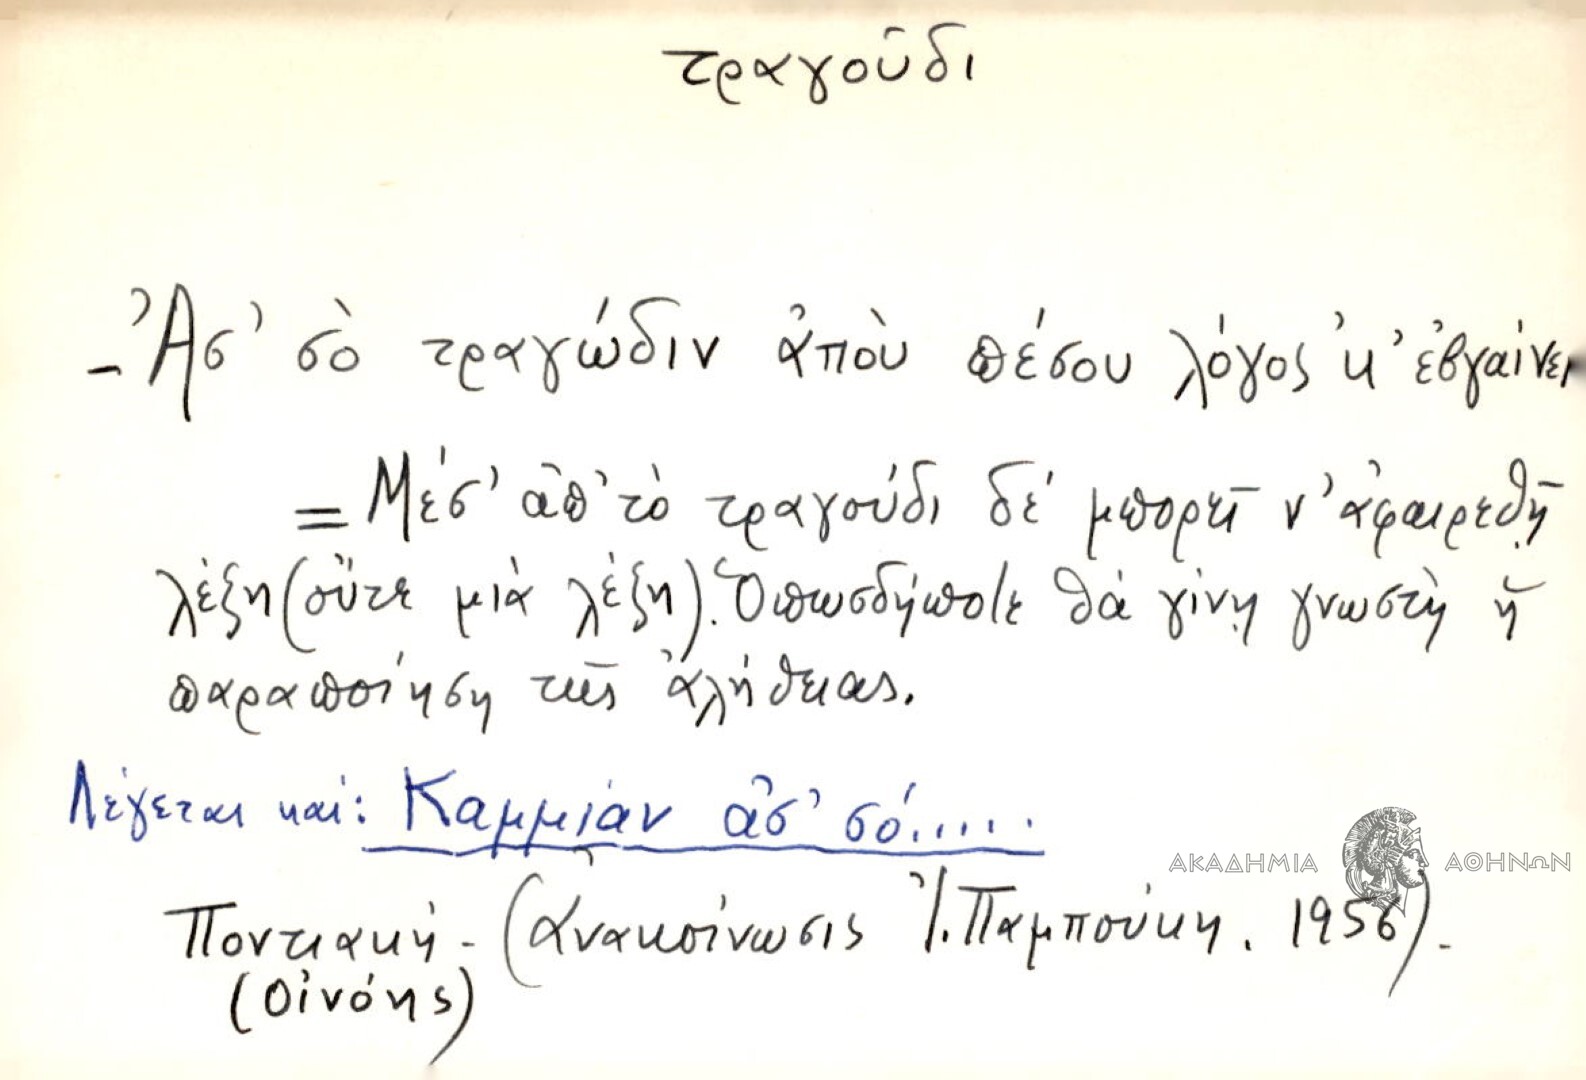 τραγοῦδι
- Ἀσ' σὸ τραγώδιν ἀπὸυ πέσου λόγος 'κ' ἐβγαίνει
= Μέσ' ἀπ' τὸ τραγούδι δέ μπορεῖ ν' ἀφαιρεθῇ
λέξη (οὔτε μιὰ λέξη). Ὁπωσδήποτε θὰ γίνῃ γνωστὴ ἡ
παραποίηση τῆς ἀλήθειας.
Λέγεται καί: Καμμίαν ἀσ' σό.....
ΑΚΑΔΗΜΙΑ ΑΘΗΝΩΝ
Ποντιακή - (Ἀνακοίνωσις Ἰ. Παμπούκη. 1956).
(Οἰνόης)